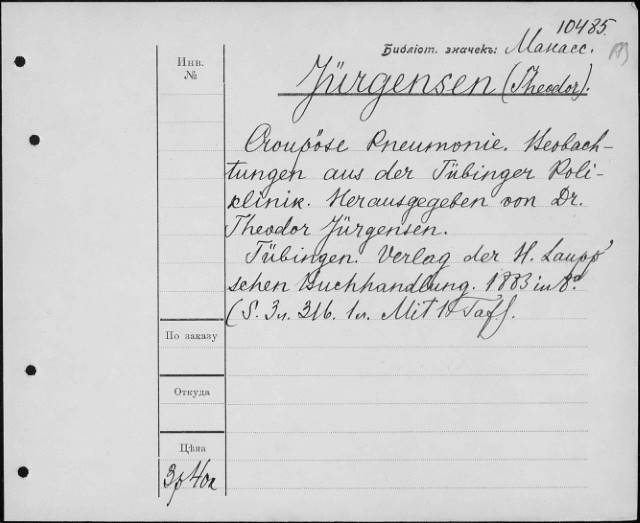 10485
Библіот. значекъ: Манасс.
Инв. №
Jürgensen (Theodor).
Croupöse Pneumonie. Beobach-
tungen aus der Tübinger Poli-
klinik. Herausgegeben von Dr.
Theodor Jürgensen.
Tübingen. Verlag der H. Laupp'
schen Buchhandlung. 1883 in 8°.
(S. 3л. 316. 1л. Mit Taff.
По заказу
Откуда
Цѣна
3р 40к